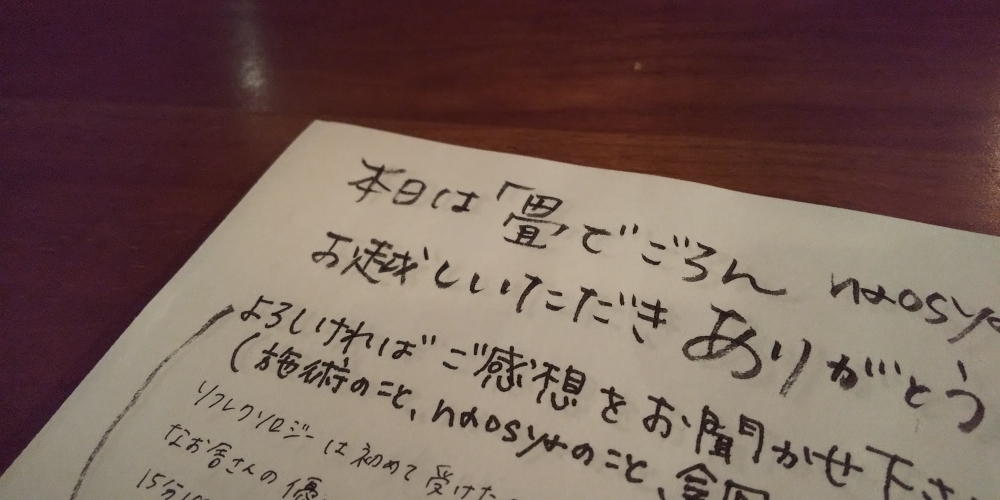 本日は「畳でごろん naosya
お越しいただき ありがとう
よろしければ ご感想を お聞かせ下さ
(施術のこと、naosyaのこと、
リフレクソロジーは初めて受けた
なお舎さんの優
15分